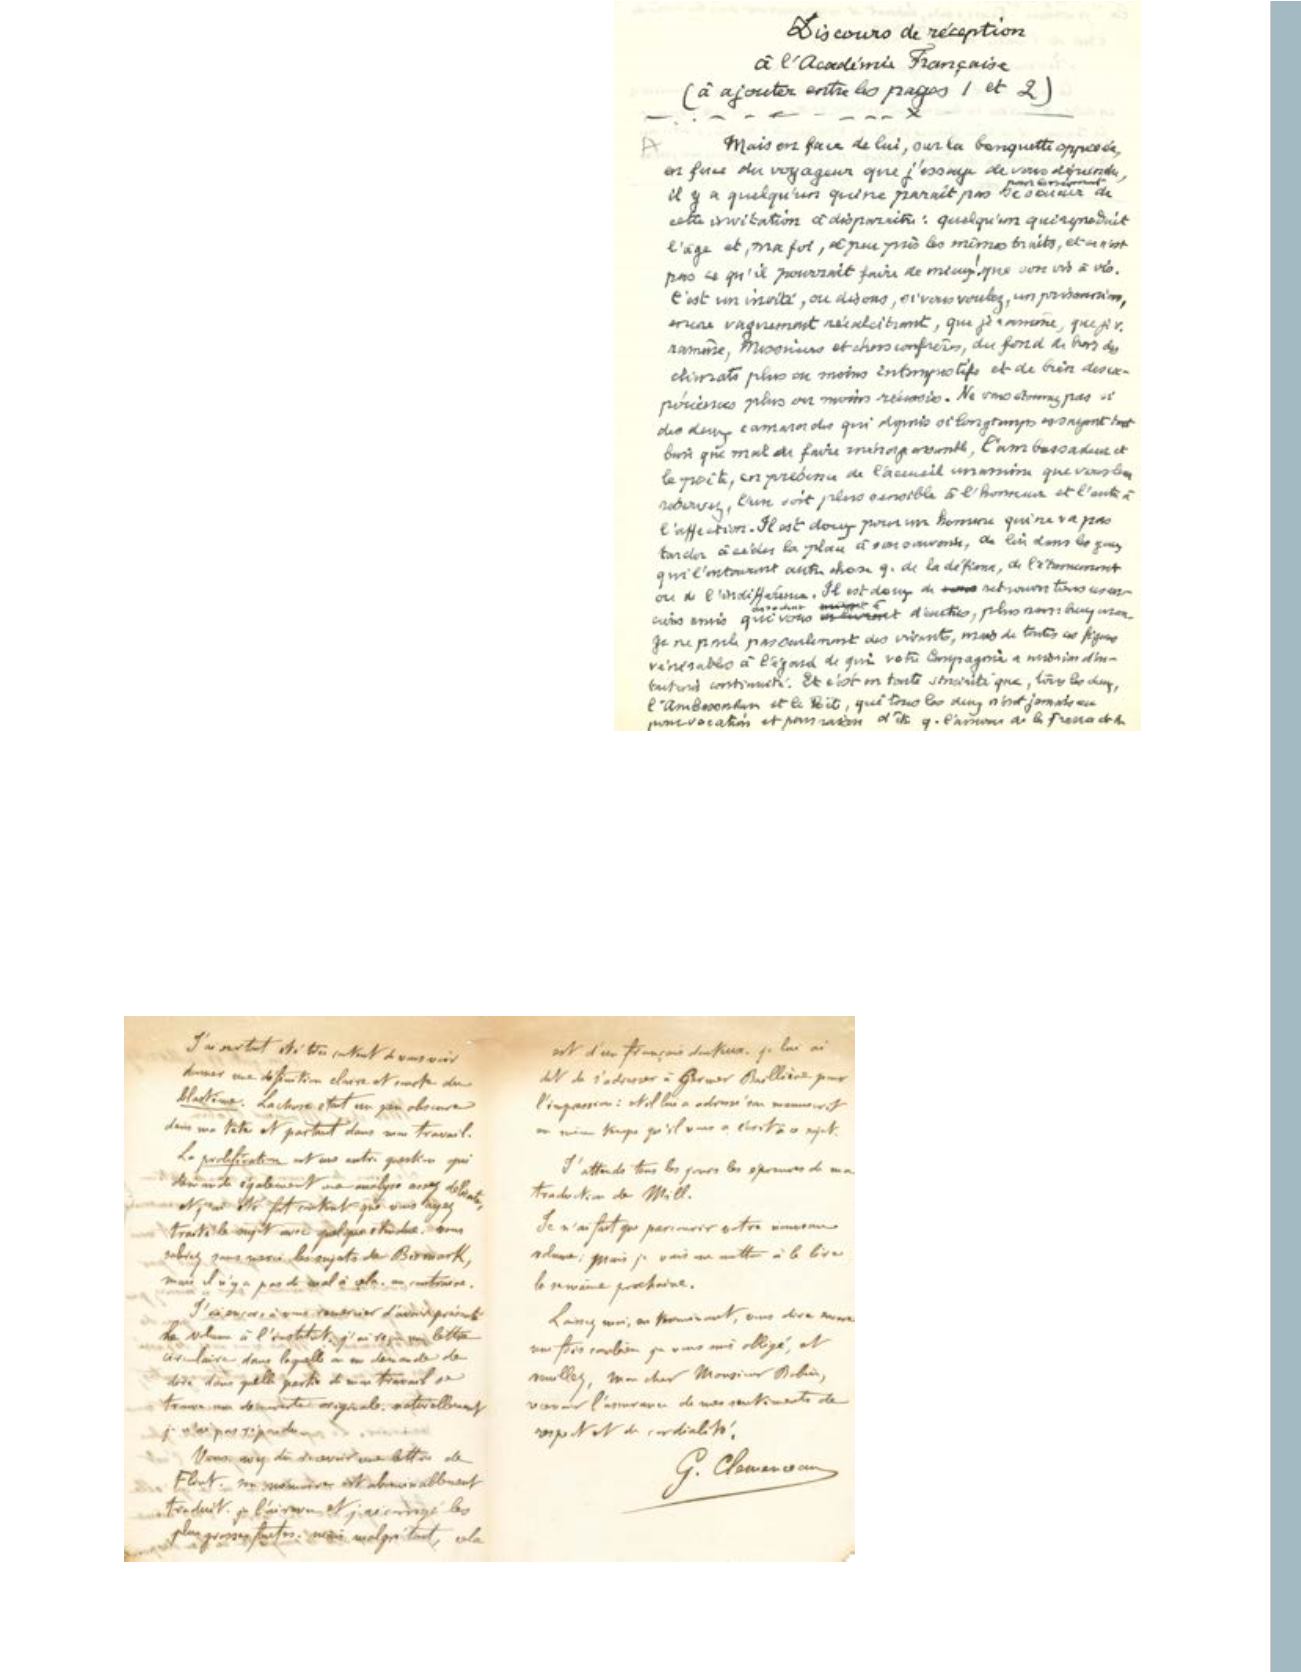 Discours de réception
à l'Académie Française
(à ajouter entre les pages 1 et 2)
A Mais en face de lui, sur la banquette opposée,
en face du voyageur que j'essaye de vous dépeindre,
il y a quelqu'un qui ne paraît pas se soucier de
cette invitation à disparaître : quelqu'un qui reproduit
l'âge et, ma foi, à peu près les mêmes traits, et ce n'est
pas ce qu'il pourrait faire de mieux! que son vis à vis.
C'est un invité, ou disons, si vous voulez, un prisonnier,
encore vaguement récalcitrant, que je ramène, que je v.
ramène, Messieurs et chers confrères, du fond de bien des
climats plus ou moins intempestifs et de bien des ex-
périences plus ou moins réussies. Ne vous étonnez pas si
des deux camarades qui depuis si longtemps essayent tant
bien que mal de faire ménage ensemble, l'ambassadeur et
le poète, en présence de l'accueil unanime que vous leur
réservez, l'un soit plus sensible à l'honneur et l'autre à
l'affection. Il est doux pour un homme qui ne va pas
tarder à céder la place à son souvenir, de lire dans les yeux
qui l'entourent autre chose q. de la défiance, de l'étonnement
ou de l'indifférence. Il est doux de retrouver tous ces an-
ciens amis qui vous d'autres, plus
Je ne parle pas seulement des vivants, mais de toutes ces figures
vénérables à l'égard de qui votre Compagnie a mission d'in-
continuité. Et c'est en toute sincérité que, tous les deux,
l'Ambassadeur et le Poète, qui tous les deux n'ont jamais eu
pour vocation et pour raison d'être q. l'amour de la France et de
J'ai surtout été très content de vous voir
donner une définition claire et exacte du
blastème. La chose était un peu obscure
dans ma tête et partant dans mon travail.
La prolifération est une autre question qui
demande également une analyse assez délicate,
et j'ai été fort content que vous ayez
traité le sujet avec quelque étendue. vous
sabrez sans merci les sujets de Bismark,
mais il n'y a pas de mal à cela. au contraire.
J'ai encore à vous remercier d'avoir présenté
le volume à l'institut. j'ai reçu une lettre
circulaire dans laquelle on me demande de
dire dans quelle partie de mon travail se
trouve une découverte originale. naturellement
je n'ai pas répondu.
Vous avez dû recevoir une lettre de
Flint. son mémoire est abominablement
traduit. je l'ai revu et j'ai corrigé les
plus grosses fautes. mais malgré tout, cela
est d'un français douteux. je lui ai
dit de s'adresser à Germer Baillière pour
l'impression : et il lui a adressé son manuscrit
en même temps qu'il vous a écrit à ce sujet.
J'attends tous les jours les épreuves de ma
traduction de Mill.
Je n'ai fait que parcourir votre nouveau
volume ; mais je vais me mettre à le lire
la semaine prochaine.
Laissez moi, en terminant, vous dire encore
une fois combien je vous suis obligé, et
veuillez, mon cher Monsieur Robin,
recevoir l'assurance de mes sentiments de
respect et de cordialité.
G. Clemenceau